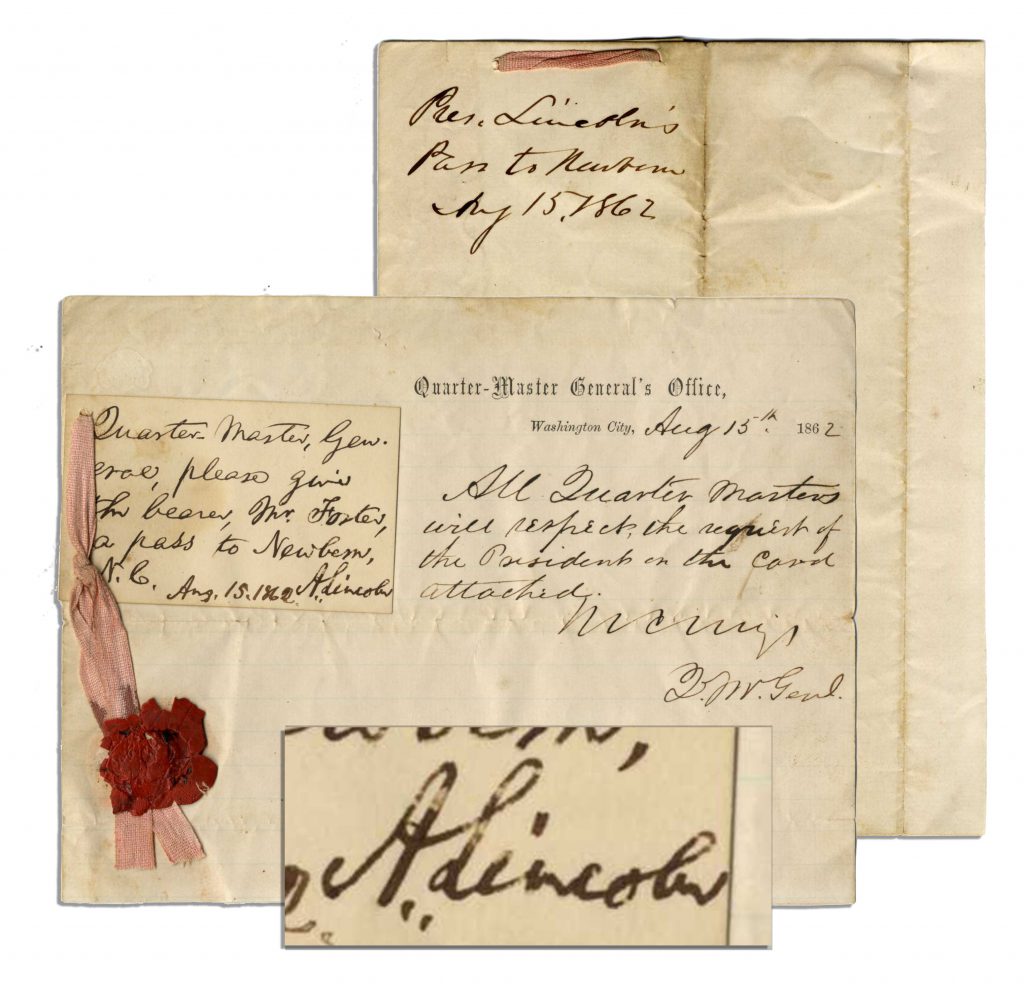 Pres. Lincoln's
Pass to Newbern
Aug 15, 1862
Quarter-Master General's Office,
Washington City, Aug 15th. 1862
Quarter-Master, Gen-
eral, please give
the bearer, Mr. Foster,
a pass to Newbern,
N.C.
Aug. 15. 1862. A. Lincoln
All Quarter Masters
will respect the request of
the President on the Card
attached.
M C Meigs
Q. M. Genl.
A. Lincoln